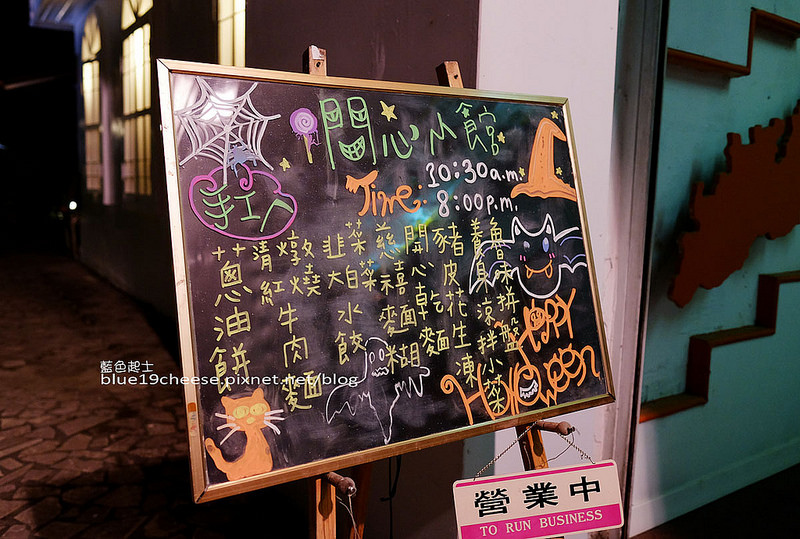 開心小館
Time: 10:30a.m.
8:00p.m.
手工ㄟ
蔥油餅
清燉
紅燒
牛肉麵
韭菜
大白菜
水餃
慈禧麵糊
開心乾麵
豬皮花生凍
養身涼拌小菜
魚味拼盤
HAPPY
Halloween
藍色起士
blue19cheese.pixnet.net/blog
營業中
TO RUN BUSINESS